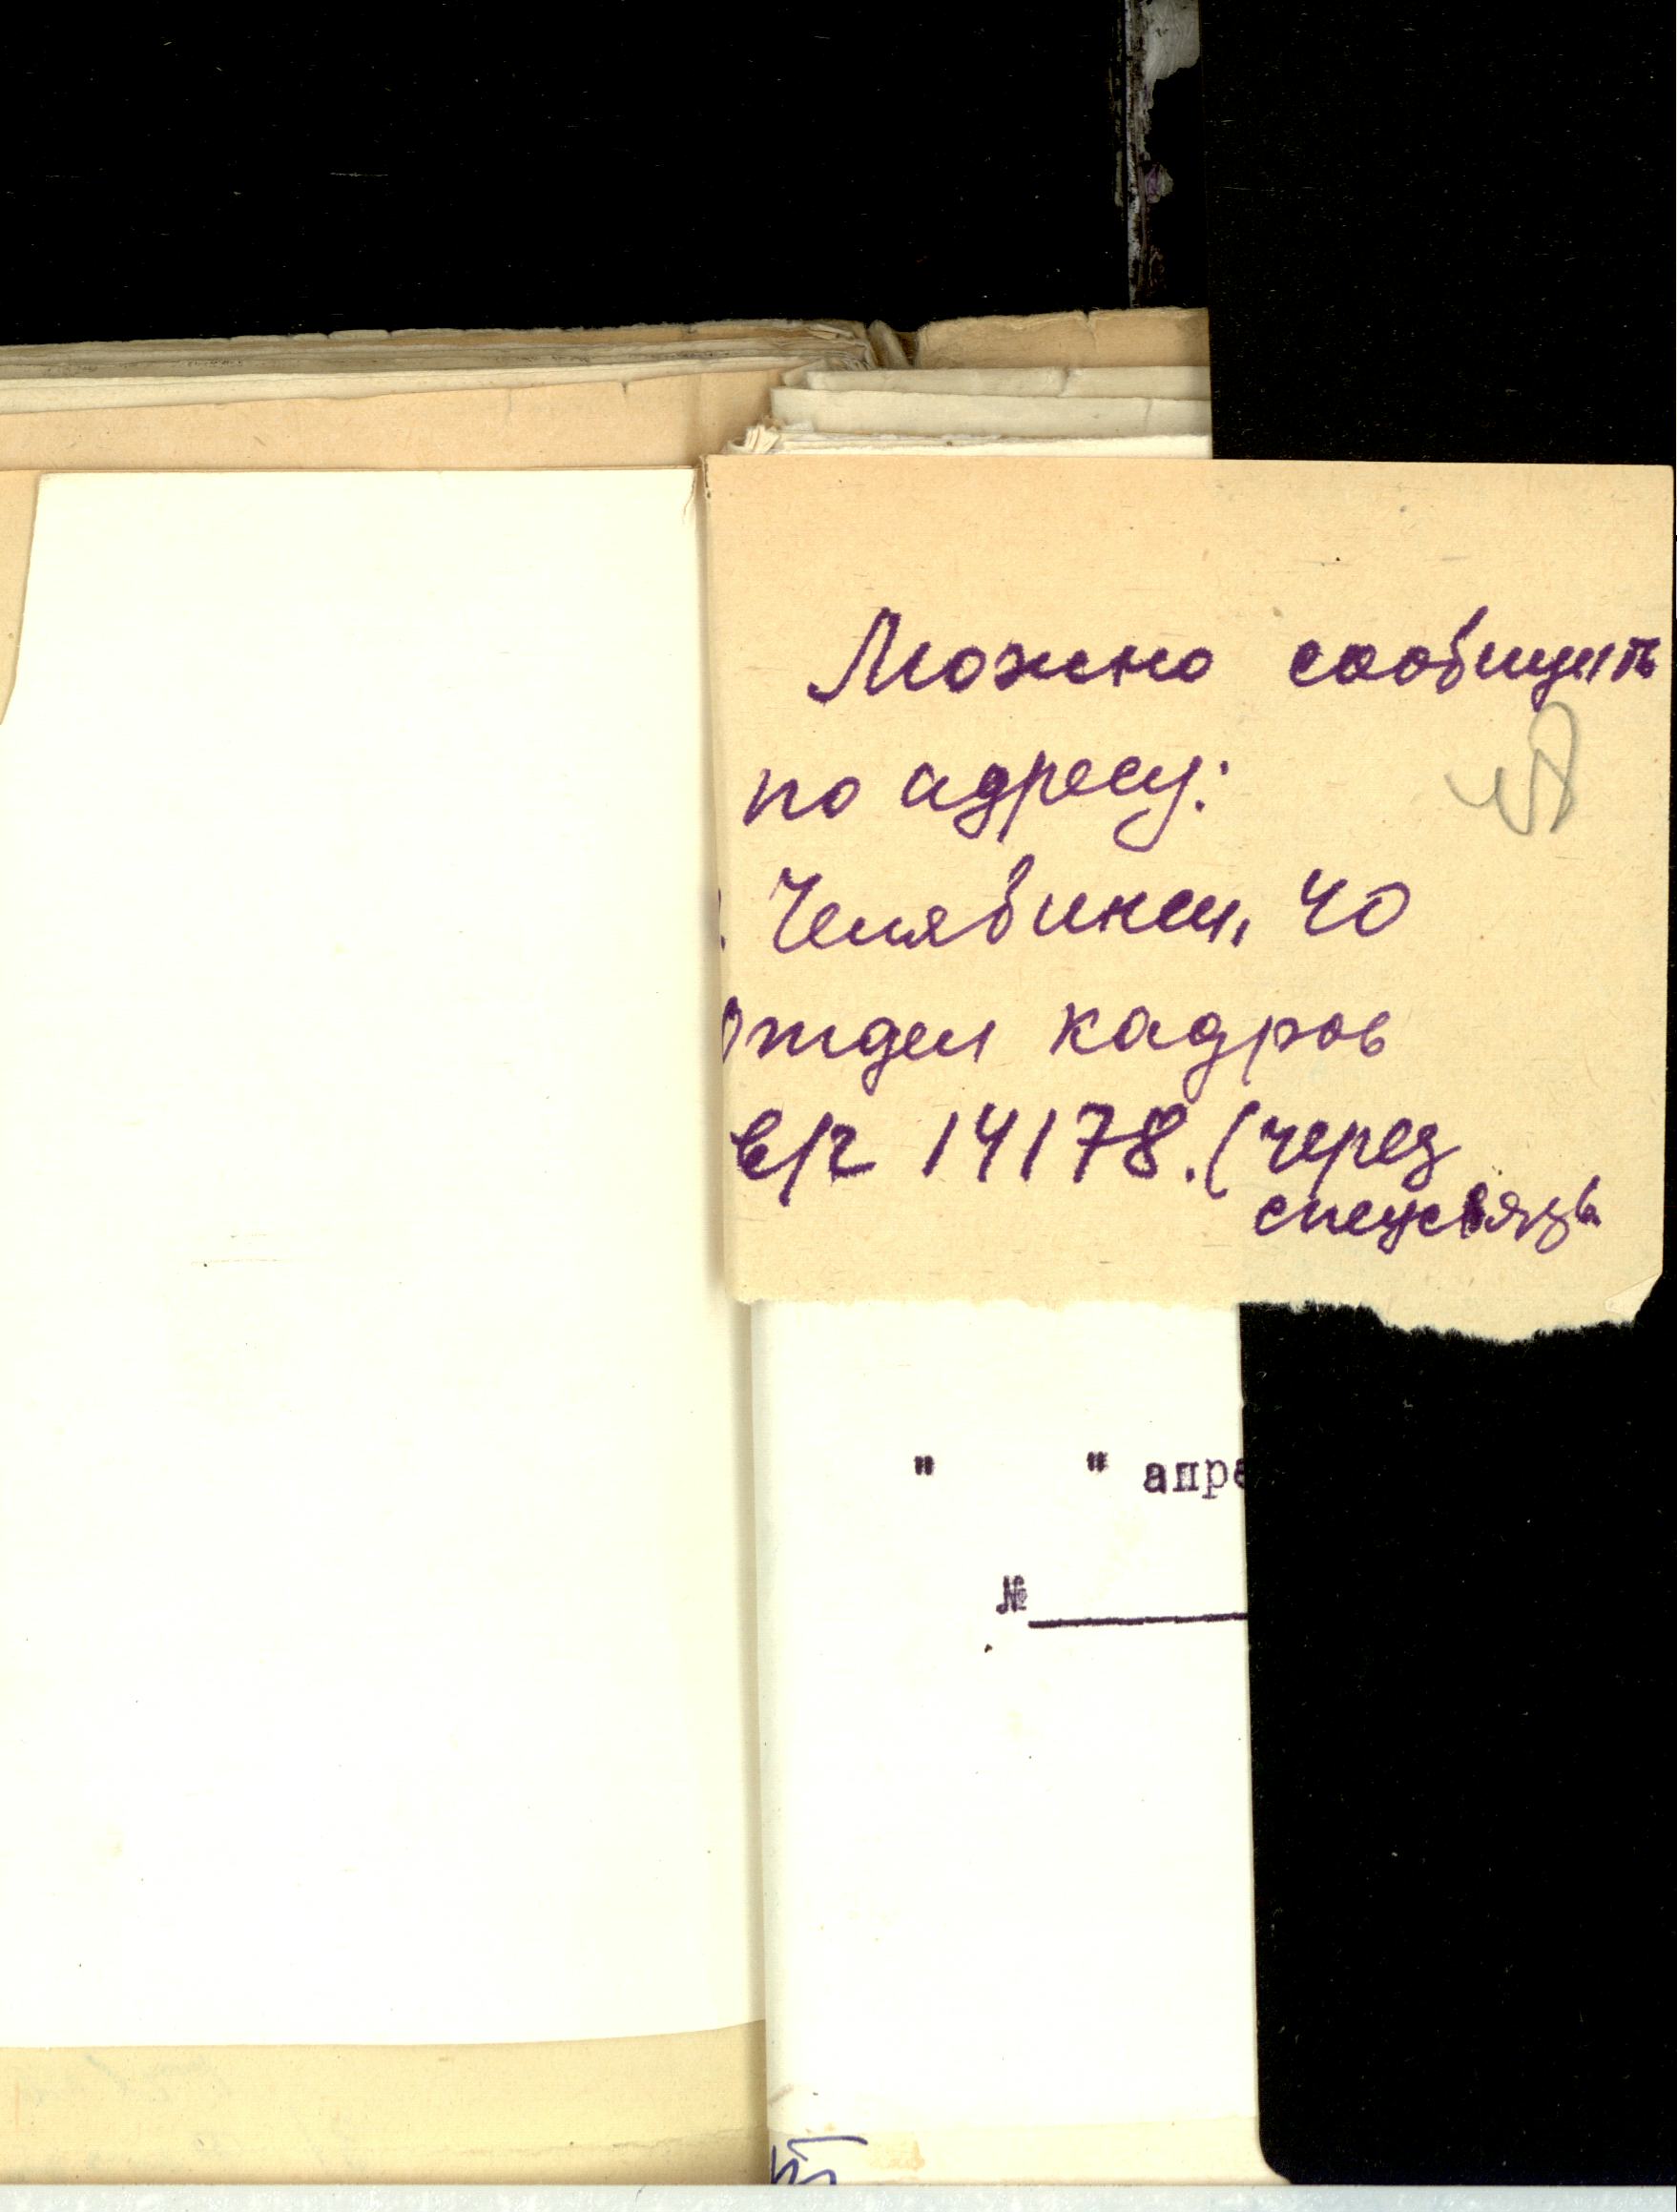 Можно сообщить
по адресу:
г. Челябинск, 40
Отдел кадров
в/ч 14178. (через
спецсвязь
"     " апре
№